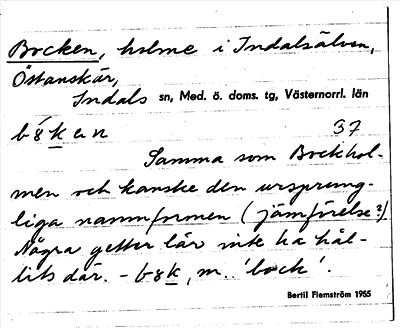 Bocken, holme i Indalsälven,
Östanskär,
Indals sn, Med. ö. doms. tg, Västernorrl. län
b8́ken 37
Samma som Bockhol-
men och kanske den ursprung-
liga namnformen (jämförelse?)
Några getter lär inte ha hål-
lits där. - b8k, m. 'bock'.
Bertil Flemström 1955